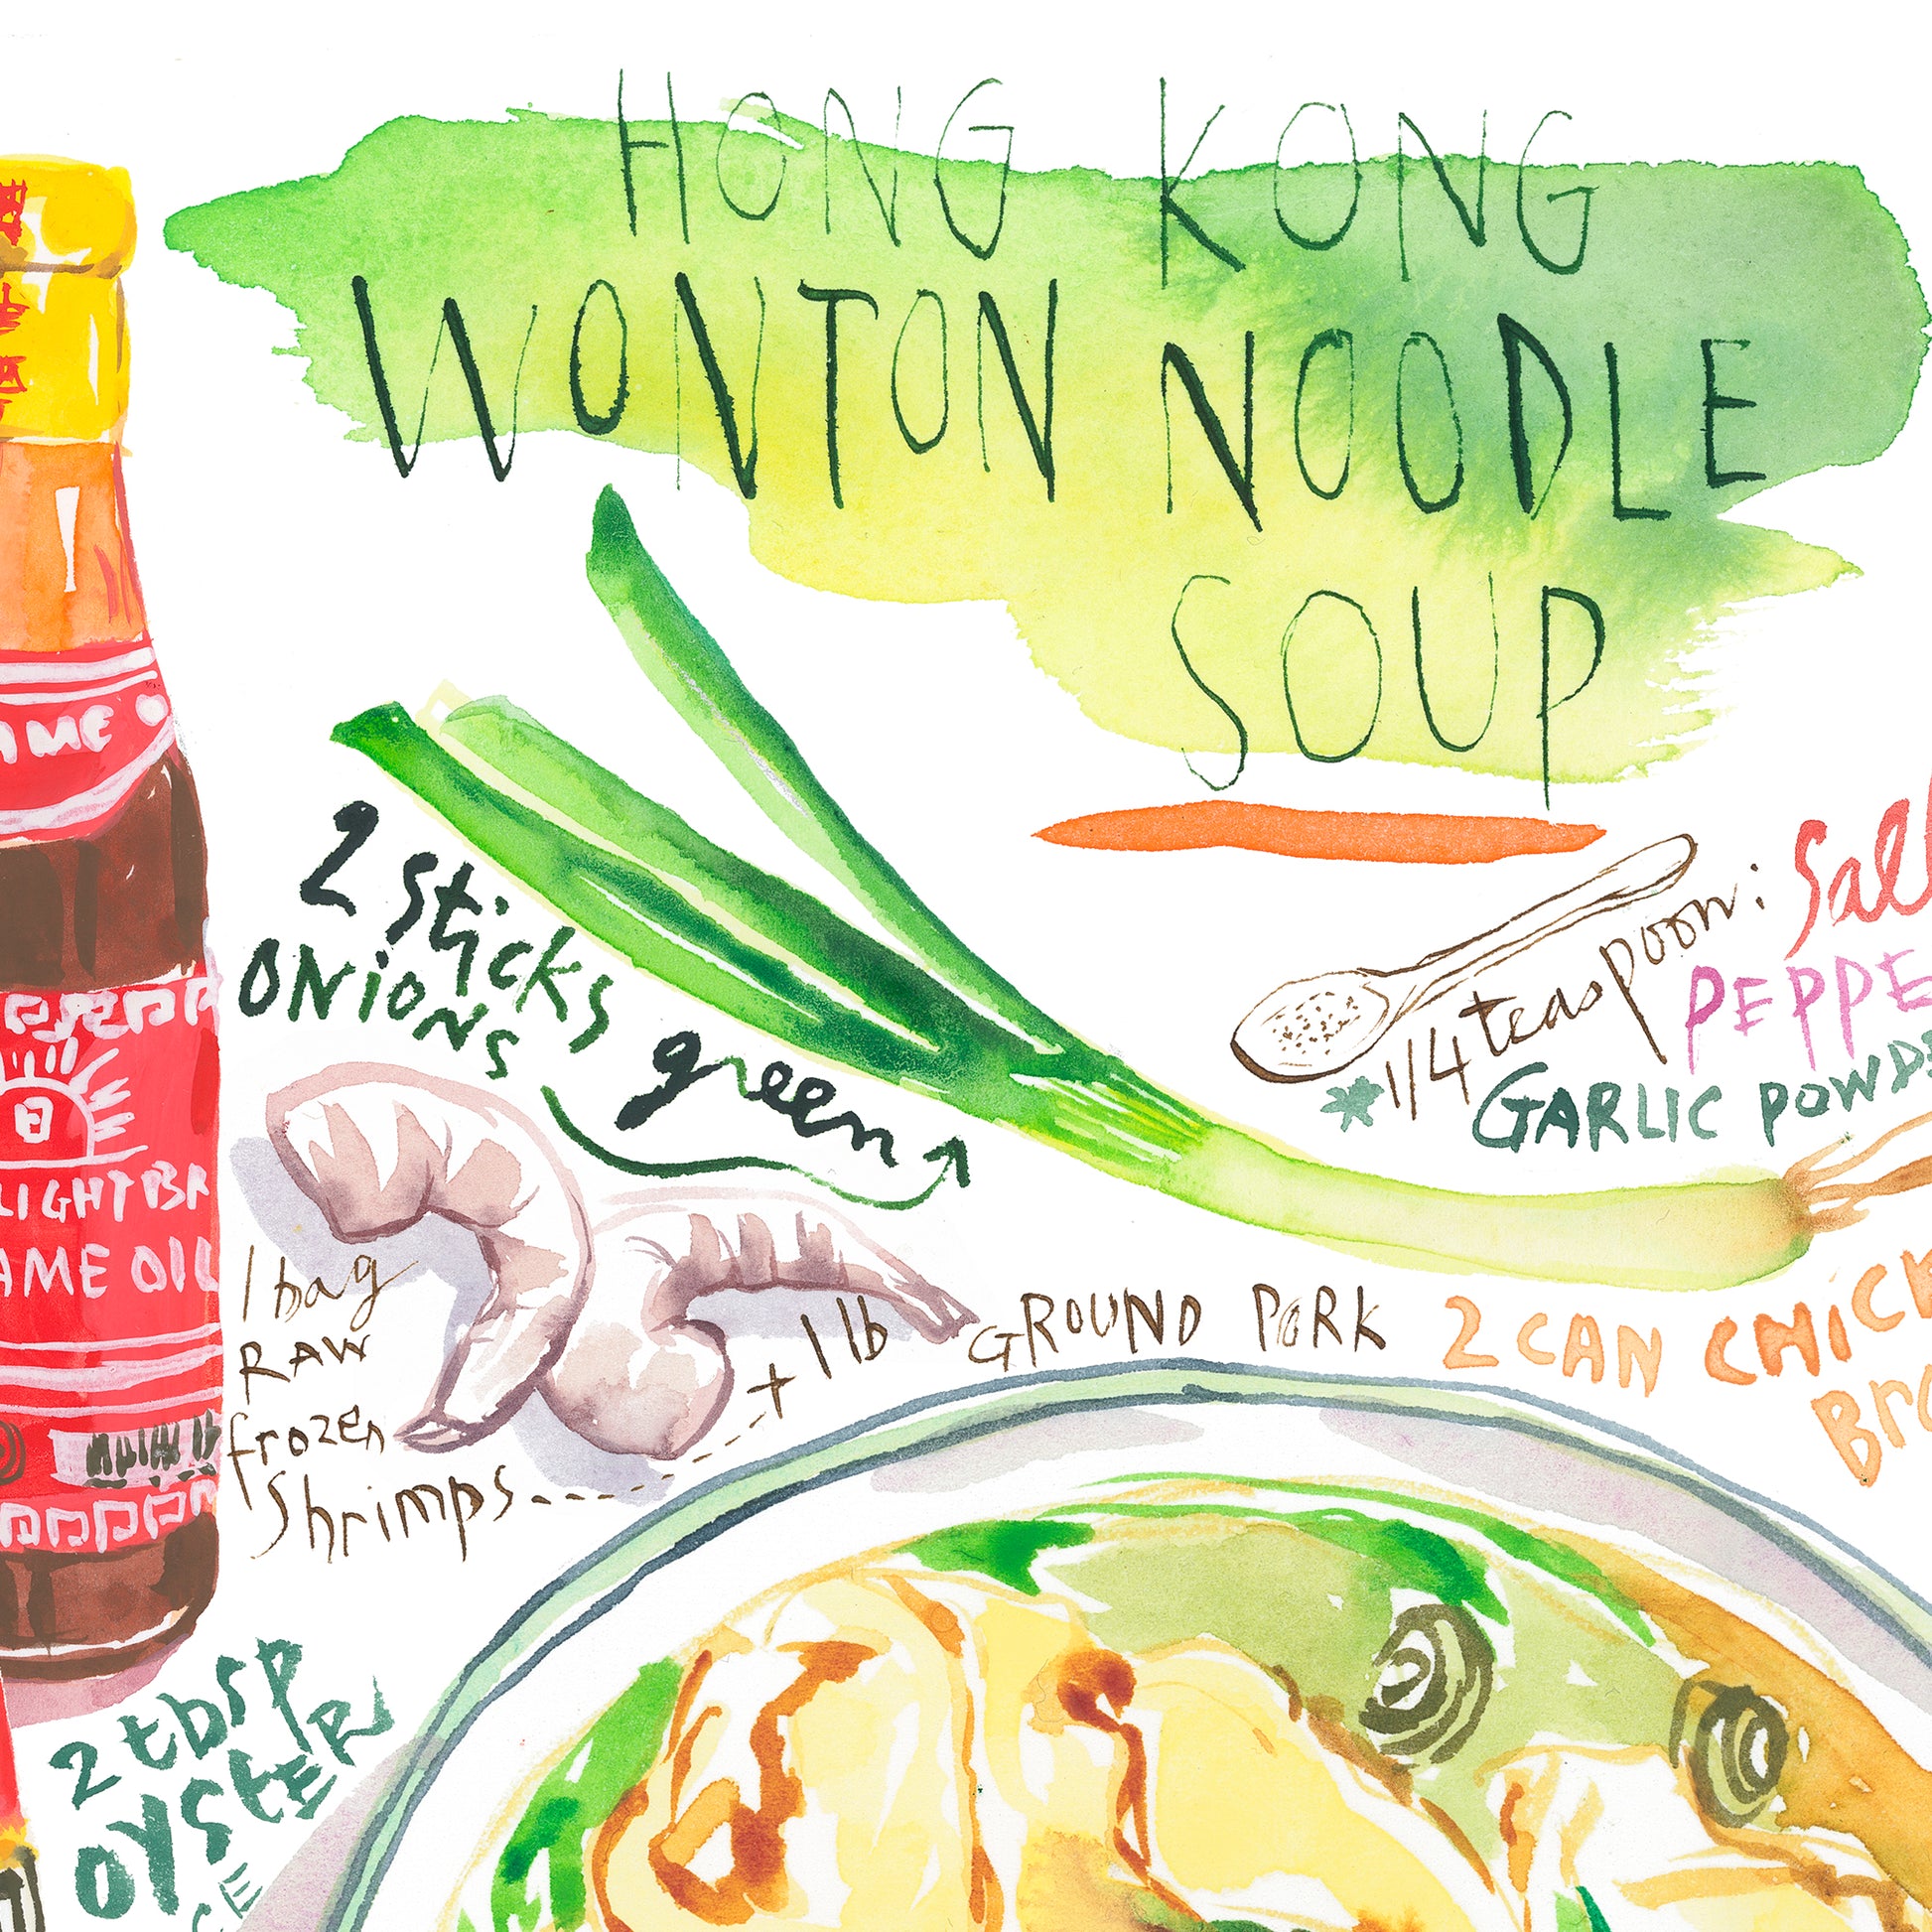 HONG KONG
WONTON NOODLE
SOUP
AME
LIGHT BR
AME OIL
2 sticks
ONiONS
green
1/4 teaspoon: Sal
PEPPE
GARLIC POWDE
1 bag
RAW
frozen
Shrimps
+ 1 lb GROUND PORK
2 CAN CHiCK
Bro
2 tbsp
OYStER
CE